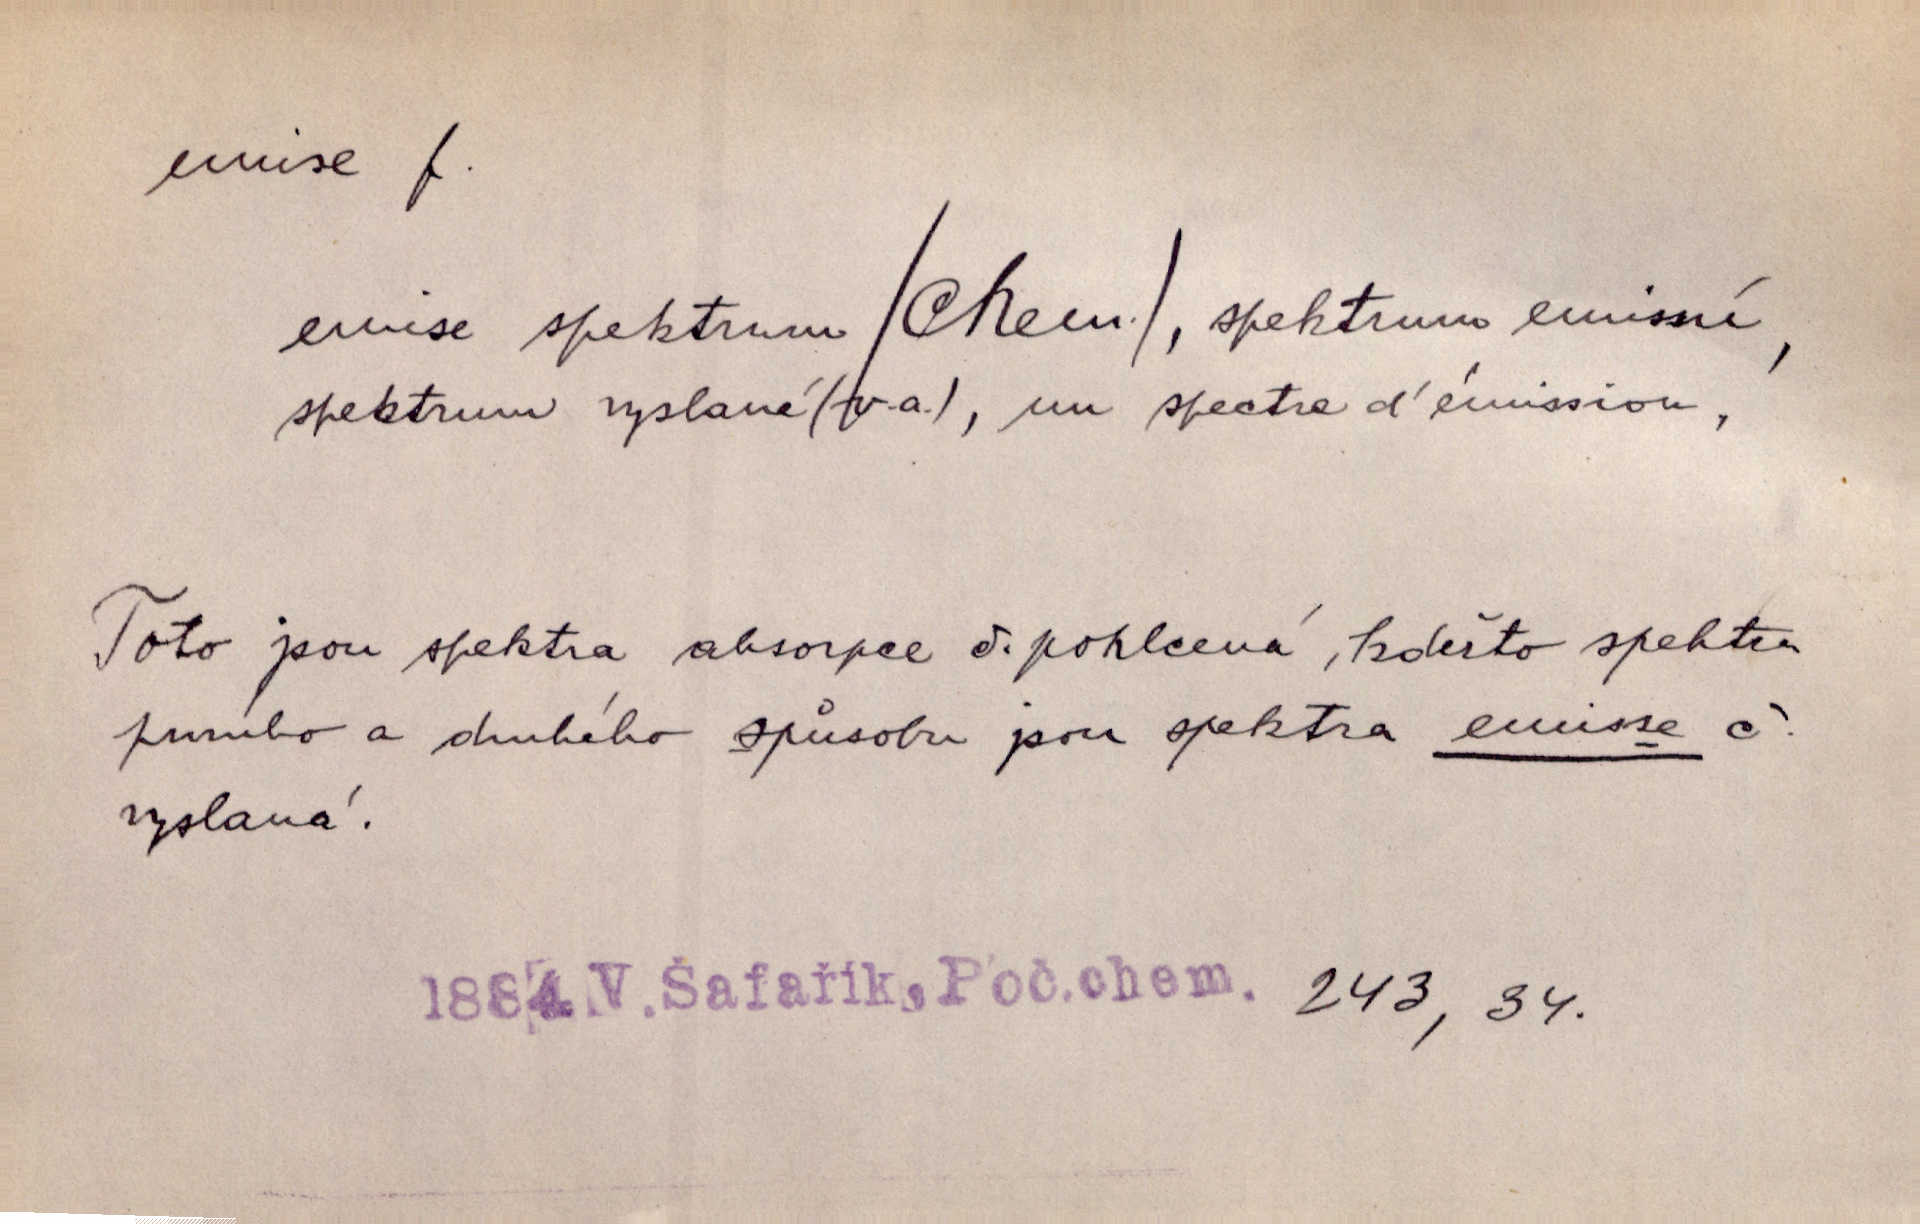 emise f.
emise spektrum /Chem./, spektrum emisní,
spektrum vyslané (v.a.), un spectre d'émission,
Toto jsou spektra absorpce č. pohlcená, kdežto spektra
prvního a druhého spůsobu jsou spektra emisse č.
vyslaná.
1884 V. Šafařík, Poč. chem. 243, 34.